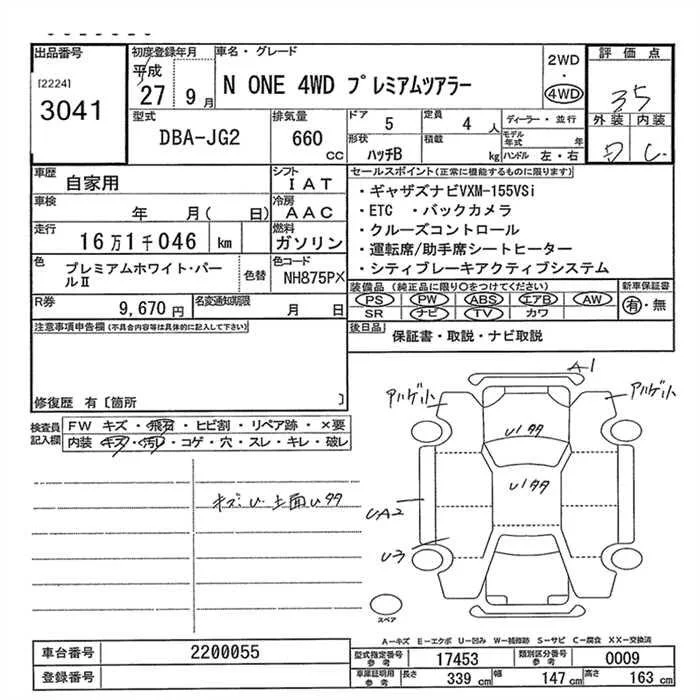 出品番号
[2224]
3041
初度登録年月
平成
27 9月
車名・グレード
N ONE 4WD プレミアムツアラー
2WD
・
4WD
評価点
3.5
外装 内装
型式
DBA-JG2
排気量
660
CC
ドア 5
定員 4 人
形状
ハッチB
積載
kg
ディーラー・並行
モデル年式 年
ハンドル 左・右
車歴 自家用
シフト
IAT
車検 年 月( 日)
冷房
AAC
走行 16万1千046 km
燃料
ガソリン
色 プレミアムホワイト・パールⅡ
色替
色コード
NH875PX
R券 9,670円
名変通知期限
月 日
セールスポイント(正常に機能するものに限ります)
・ギャザズナビVXM-155VSi
・ETC ・バックカメラ
・クルーズコントロール
・運転席/助手席シートヒーター
・シティブレーキアクティブシステム
装備品 (純正品に限り○をつけてください)
PS PW ABS エアB AW
SR ナビ TV カワ
新車保証書
有・無
後日品 保証書・取説・ナビ取説
注意事項申告欄(不具合内容等は具体的に記入して下さい)
修復歴 有〔箇所 〕
検査員記入欄
FW キズ・飛石・ヒビ割・リペア跡・×要
内装 キズ・汚れ・コゲ・穴・スレ・キレ・破レ
A1
アルゲ小
アルゲ小
U1
U1
UA2
U3
スペア
A-キズ E-エクボ U-凹み W-補修跡 S-サビ C-腐食 XX-交換済
車台番号 2200055
登録番号
型式指定番号
参考
17453
類別区分番号
参考
0009
車庫証明用
参考
長さ 339 cm
幅 147 cm
高さ 163 cm